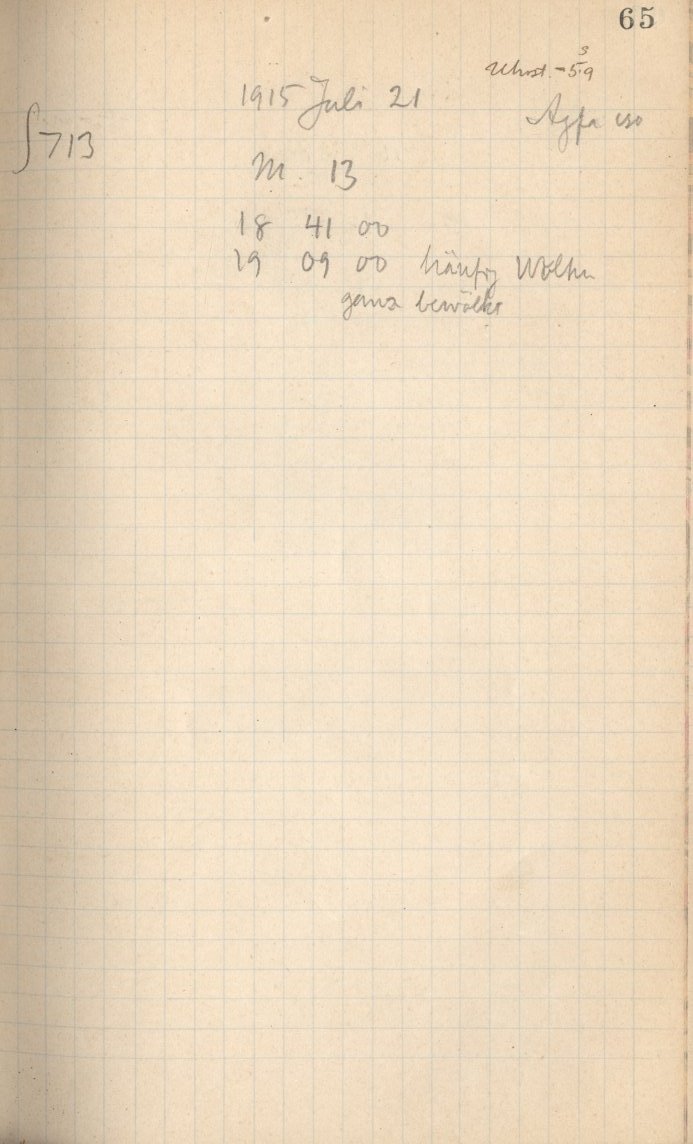 65
Uhrst. -5ˢ9
1915 Juli 21
Agfa iso
∫713
M. 13
18 41 00
19 09 00 häufig Wolken
ganz bewölkt